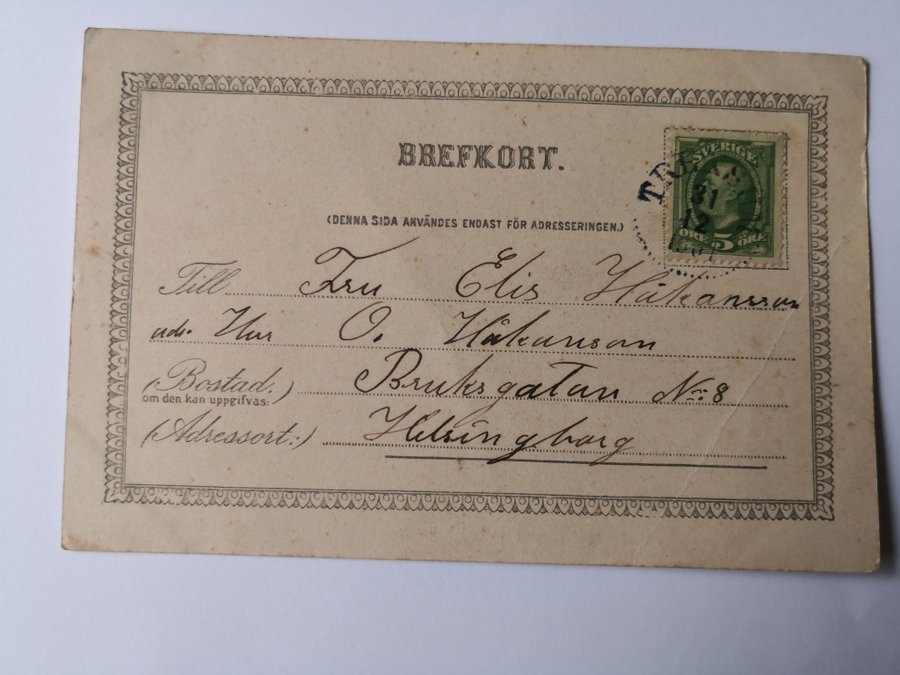 BREFKORT.
SVERIGE
31
12
ÖRE 5 ÖRE
(DENNA SIDA ANVÄNDES ENDAST FÖR ADRESSERINGEN.)
Till Fru Elis Håkansson
O. Håkanson
(Bostad: Bruksgatan No: 8
om den kan uppgifvas.)
(Adressort:) Helsingborg